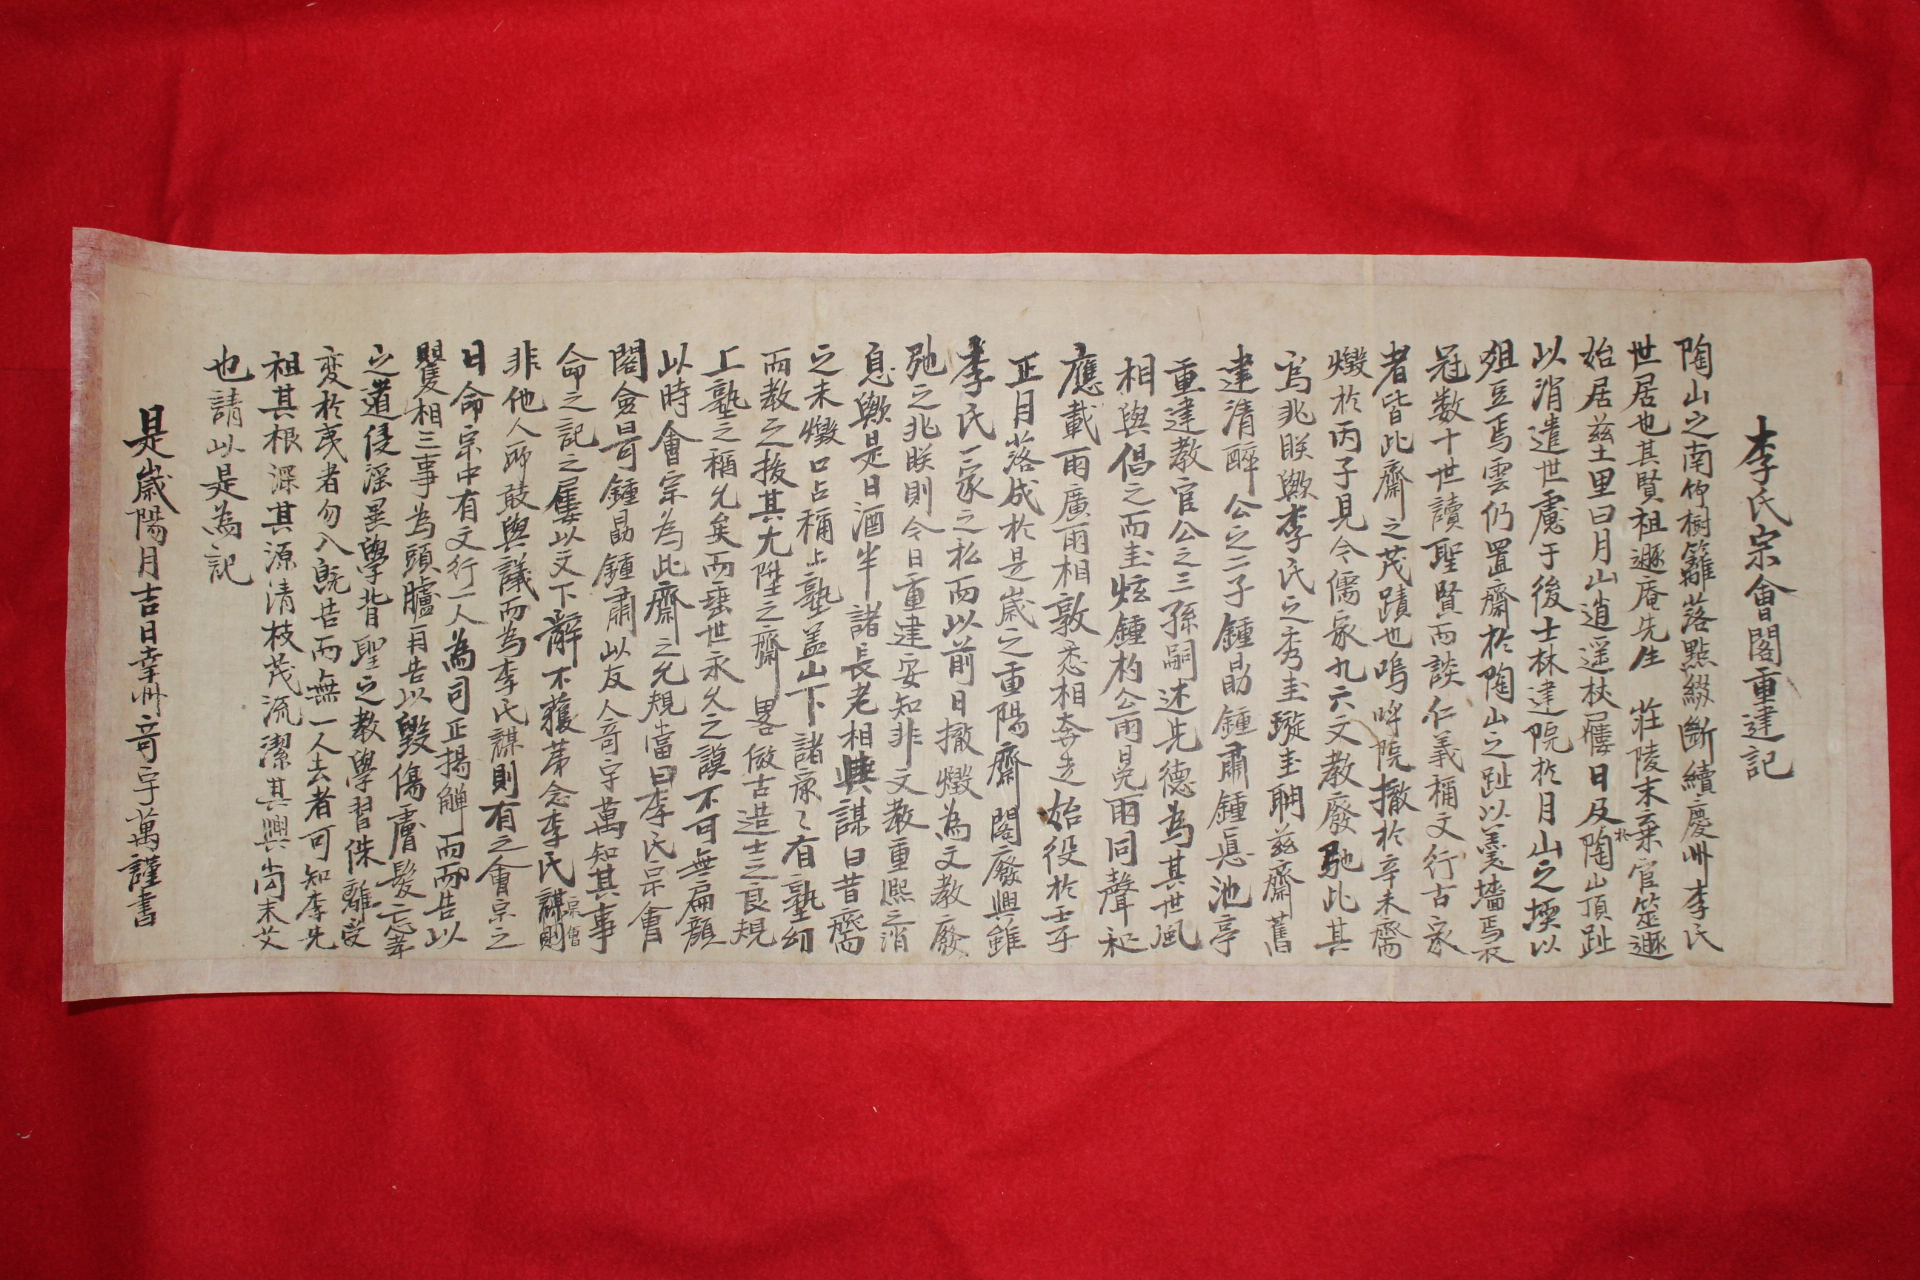 李氏宗會閣重建記
陶山之南仰樹籬落點綴斷續慶州李氏
世居也其賢祖遯庵先生 莊陵末棄官筮遯
始居茲土里曰月山逍遥杖屨日及於陶山頂趾
以消遣世慮于後士林建院於月山之堧以
俎豆焉雲仍置齋於陶山之趾以羹墻焉衣
冠数十世讀聖賢而談仁義稱文行古家
者皆此齋之茂蹟也嗚呼院撤於辛未齋
燬於丙子見今儒家九六文教廢弛此其
爲兆朕歟李氏之秀圭璇圭瑚茲齋舊
建清醉公之二子鍾勗鍾肅鍾 池亭
重建教官公之三孫嗣述先德為其世風
相與倡之而圭炫鍾杓公甫晃甫同聲和
應載甫廣甫相敦悉相奔走始役於壬子
正月落成於是歲之重陽齋閣廢興雖
李氏一家之私而以前日撤燬為文教廢
弛之兆朕則今日重建安知非文教重熙之消
息歟是日酒半諸長老相與謀曰昔齋
之未燬口占稱上塾盖山下諸家々有塾幼
而教之拔其尤陞之齋畧倣古造士之良規
上塾之稱允矣而垂世永久之謨不可無扁顏
以時會宗為此齋之允規當曰李氏宗會
閣僉曰可鍾勗鍾肅以友人奇宇萬知其事
命之記之屢以文下辭不獲苐念李氏宗會謀則
非他人所敢與議而為李氏謀則有之會宗之
日命宗中有文行一人為司正揚觶而而告以
矍相三事為頭臚有告以毀傷膚髮忘華
之道侵淫異學背聖之教學習侏離受
変於夷者勿入既告而無一人去者可知李先
祖其根深其源清枝茂流潔其興尚未艾
也請以是為記
是歲陽月吉日幸州奇宇萬謹書